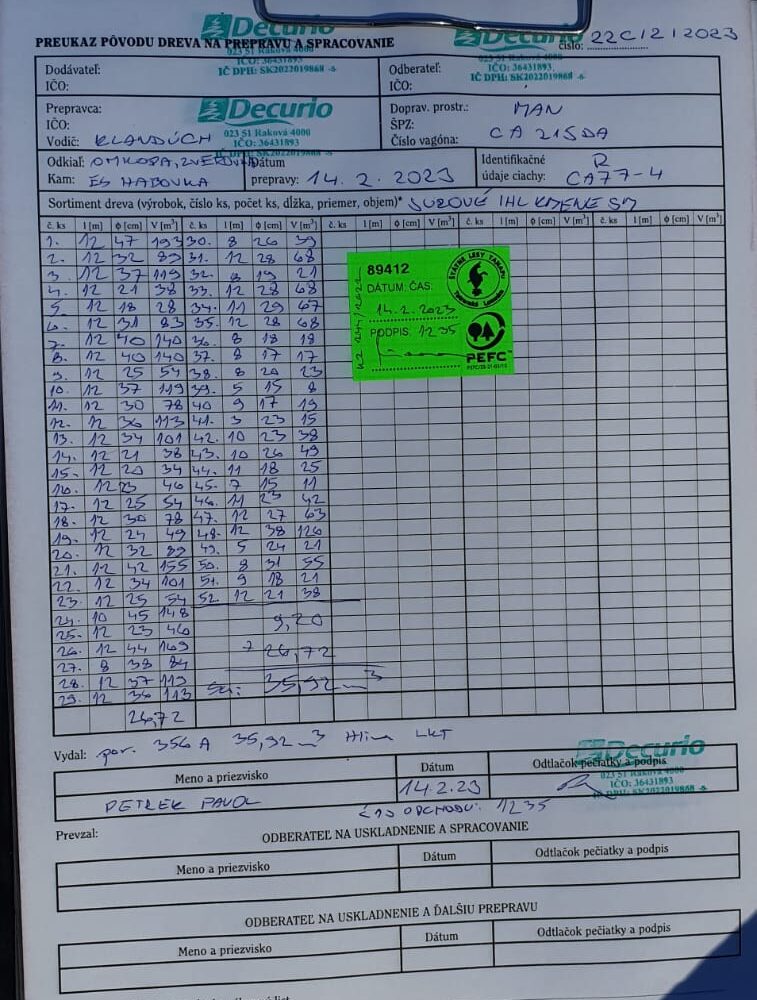 Decurio
023 51 Raková 4000
IČO: 36431893
IČ DPH: SK2022019868
Decurio
IČO: 36431893
IČ DPH: SK2022019868
PREUKAZ PÔVODU DREVA NA PREPRAVU A SPRACOVANIE
číslo: 22C/2/2023
Dodávateľ:
IČO:
Odberateľ:
IČO:
Prepravca:
IČO:
Vodič: KLANDÚCH
Decurio
023 51 Raková 4000
IČO: 36431893
IČ DPH: SK2022019868
Doprav. prostr.: MAN
ŠPZ:
Číslo vagóna: CA 215DA
Odkiaľ:
Kam: ES HABOVKA
Dátum
prepravy: 14.2.2023
Identifikačné R
údaje ciachy: CA77-4
Sortiment dreva (výrobok, číslo ks, počet ks, dĺžka, priemer, objem)* SUROVÉ IHL KMENE SM
č. ks l [m] ϕ [cm] V [m³] č. ks l [m] ϕ [cm] V [m³] č. ks l [m] ϕ [cm] V [m³] č. ks l [m] ϕ [cm] V [m³] č. ks l [m] ϕ [cm] V [m³]
1. 12 47 193 30. 8 26 39
2. 12 32 89 31. 12 28 68
3. 12 37 119 32. 8 19 21
4. 12 21 38 33. 12 28 68
5. 12 18 28 34. 11 29 67
6. 12 31 83 35. 12 28 68
7. 12 40 140 36. 8 18 18
8. 12 40 140 37. 8 17 17
9. 12 25 54 38. 8 20 23
10. 12 37 119 39. 5 15 8
11. 12 30 78 40 9 17 19
12. 12 36 113 41. 3 23 15
13. 12 34 101 42. 10 23 38
14. 12 21 38 43. 10 26 49
15. 12 20 34 44. 11 18 25
16. 12 23 46 45. 7 15 11
17. 12 25 54 46. 11 23 42
18. 12 30 78 47. 12 27 63
19. 12 24 49 48. 12 38 126
20. 12 32 89 49. 5 24 21
21. 12 42 155 50. 8 31 55
22. 12 34 101 51. 9 18 21
23. 12 25 54 52. 12 21 38
24. 10 45 148
25. 12 23 46 9,20
26. 12 44 169 26,72
27. 8 38 84
28. 12 37 119 35,92 m³
29. 12 36 113
26,72
89412
DÁTUM: ČAS:
14.2.2023
PODPIS: 12 35
ŠTÁTNE LESY TANAPU
Tatranská Lomnica
PEFC
Vydal: por. 356 A 35,92 m³ LKT
Meno a priezvisko
Dátum
Odtlačok pečiatky a podpis
PETREK PAVOL
14.2.23
Decurio
023 51 Raková 4000
IČO: 36431893
IČ DPH: SK2022019868
ČAS ODCHODU: 12 35
Prevzal:
ODBERATEĽ NA USKLADNENIE A SPRACOVANIE
Meno a priezvisko
Dátum
Odtlačok pečiatky a podpis
ODBERATEĽ NA USKLADNENIE A ĎALŠIU PREPRAVU
Meno a priezvisko
Dátum
Odtlačok pečiatky a podpis